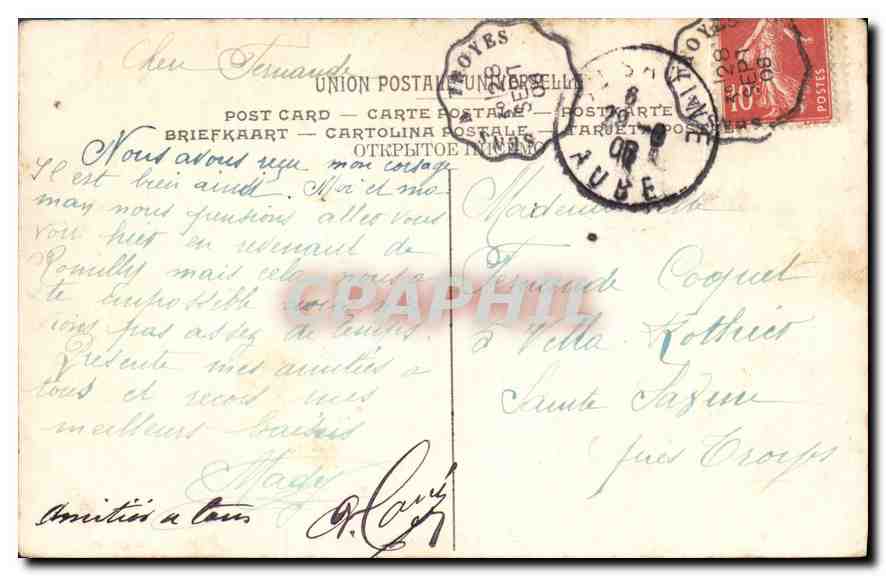 Chère Fernande
UNION POSTALE UNIVERSELLE
POST CARD — CARTE POSTALE — POSTKARTE
BRIEFKAART — CARTOLINA POSTALE — TARJETA POSTAL
ОТКРЫТОЕ ПИСЬМО
Nous avons reçu mon corsage
Il est bien ainsi. Moi et ma
man nous pensions aller vous
voir hier en revenant de
Romilly mais cela nous a
été impossible
pas assez de temps
Présente mes amitiés à
tous et reçois mes
meilleurs baisers
Amitiés a tous
TROYES
128
SEPT
08
SENS
8
29 -9
08
AUBE
TROYES
128
SEPT
08
SENS
10c
POSTES
Mademoiselle
Fernande Coquet
Villa Rothier
Sainte Savine
près Troyes
CPAPHIL